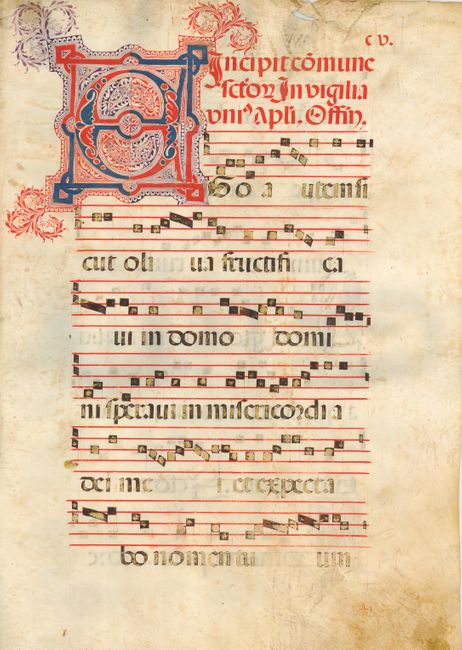 c v.
Incipit cõmune
sctor̄ In vigilia
vniꝰ apli. Offin̄.
E Go a utem si
cut oli ua fructifi ca
ui in domo domi
ni speraui in misericordi a
dei me i. et expecta
bo nomen tu um